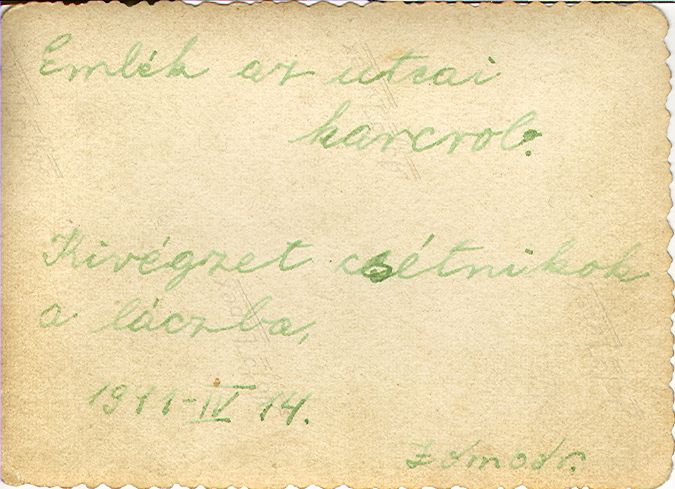 Emlék az utcai
harcrol.
Kivégzet csétnikok
a láczba,
1941-IV 14.